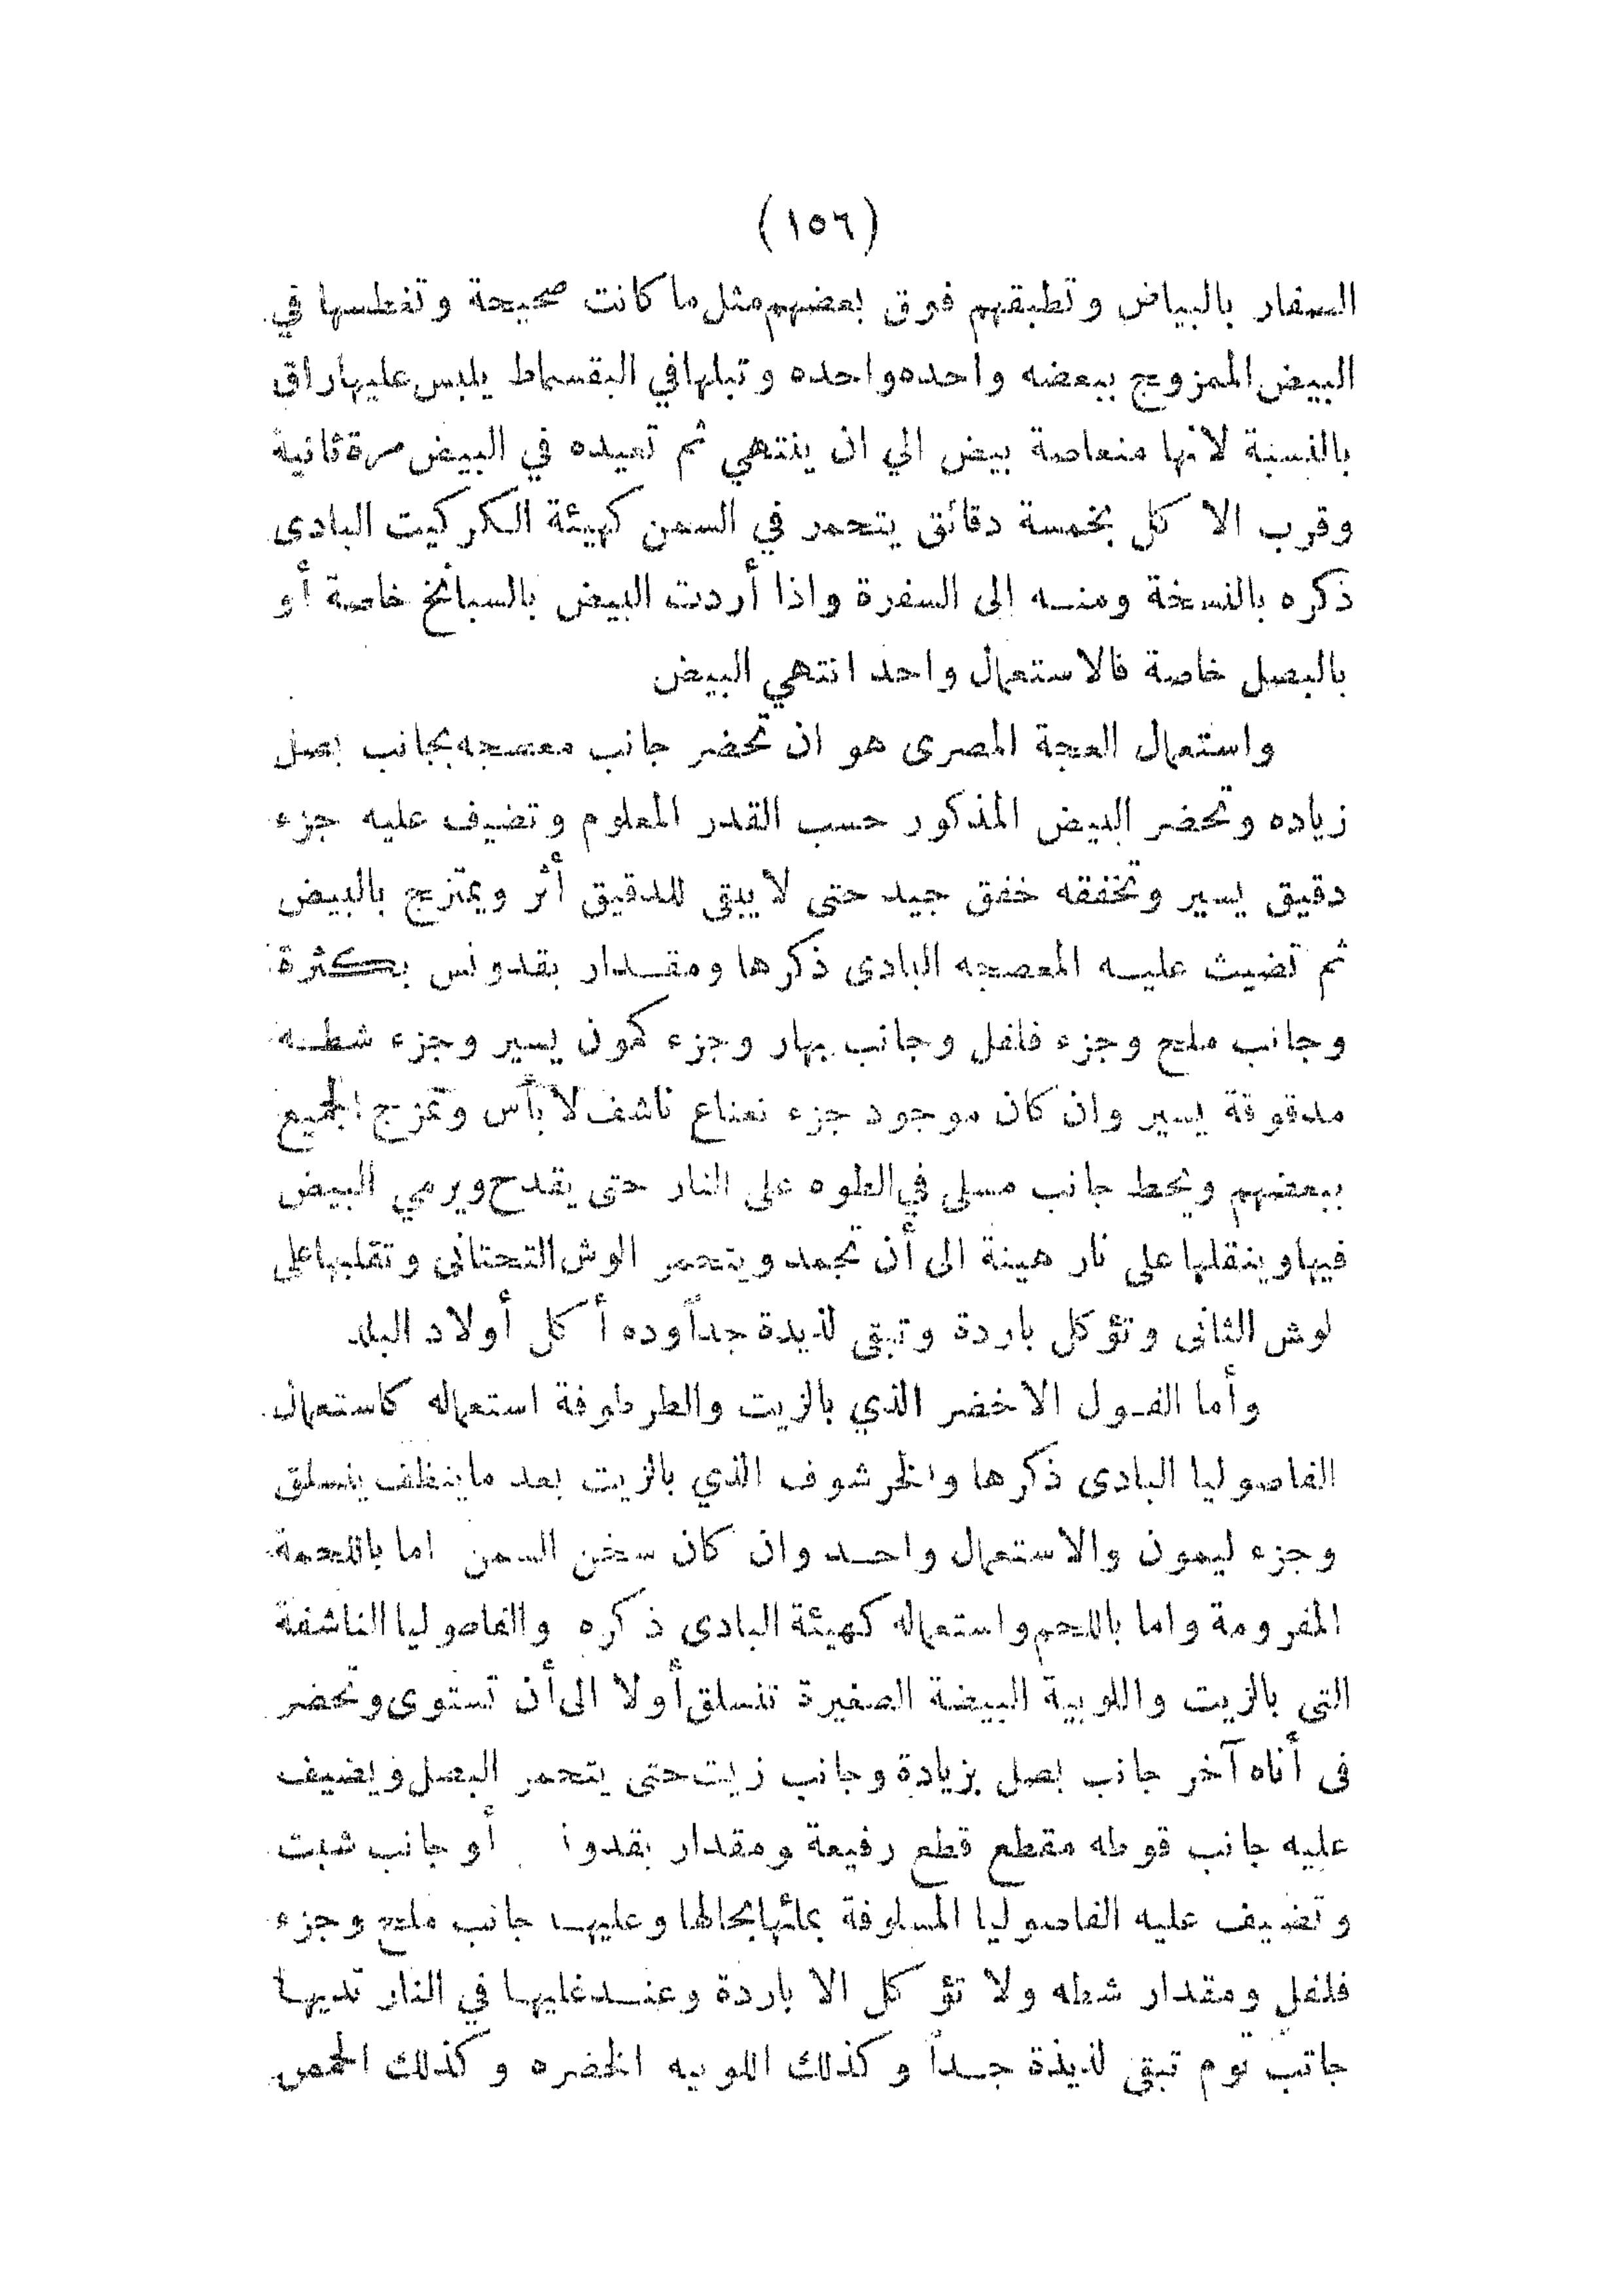 (١٥٦)
الصفار بالبياض وتطبقهم فوق بعضهم مثل ما كانت صحيحة وتغطسها في
البيض الممزوج ببعضه واحده واحده وتبلها في البقسماط يلبس عليها راق
بالنسبة لانها منعاصة بيض الي ان ينتهي ثم تعيده في البيض مرة ثانية
وقرب الاكل بخمسة دقائق يتحمر في السمن كهيئة الكركيت البادى
ذكره بالنسخة ومنه إلى السفرة واذا أردت البيض بالسبانخ خاصة أو
بالبصل خاصة فالاستعمال واحد انتهي البيض
واستعمال العجة المصرى هو ان تحضر جانب معصجه بجانب بصل
زياده وتحضر البيض المذكور حسب القدر المعلوم وتضيف عليه جزء
دقيق يسير وتخفقه خفق جيد حتى لا يبقى للدقيق أثر ويمتزج بالبيض
ثم تضيف عليه المعصجه البادى ذكرها ومقدار بقدونس بكثرة
وجانب ملح وجزء فلفل وجانب بهار وجزء كمون يسير وجزء شطه
مدقوقة يسير وان كان موجود جزء نعناع ناشف لا بأس وتمزج الجميع
ببعضهم ويحط جانب مسلى في الطوه على النار حتى يقدح ويرمي البيض
فيها وينقلها على نار هينة الى أن تجمد ويتحمر الوش التحتانى وتقلبها على
لوش الثانى وتؤكل باردة وتبقى لذيدة جداً وده أكل أولاد البلد
وأما الفول الاخضر الذي بالزيت والطرطوفة استعماله كاستعمال
الفاصوليا البادى ذكرها والخرشوف الذي بالزيت بعد ما ينظف ينسلق
وجزء ليمون والاستعمال واحد وان كان سخن السمن اما باللحمة
المفرومة واما باللحم واستعماله كهيئة البادى ذكره والفاصوليا الناشفة
التى بالزيت واللوبية البيضة الصغيرة تنسلق أولا الى أن تستوى وتحضر
فى أناه آخر جانب بصل بزيادة وجانب زيت حتى يتحمر البصل ويضيف
عليه جانب قوطه مقطع قطع رفيعة ومقدار بقدو أو جانب شبت
وتضيف عليه الفاصوليا المسلوقة بمائها بحالها وعليها جانب ملح وجزء
فلفل ومقدار شطه ولا تؤكل الا باردة وعند غليها في النار تديها
جانب توم تبقى لذيذة جداً وكذلك اللوبيه الخضره وكذلك الحمص